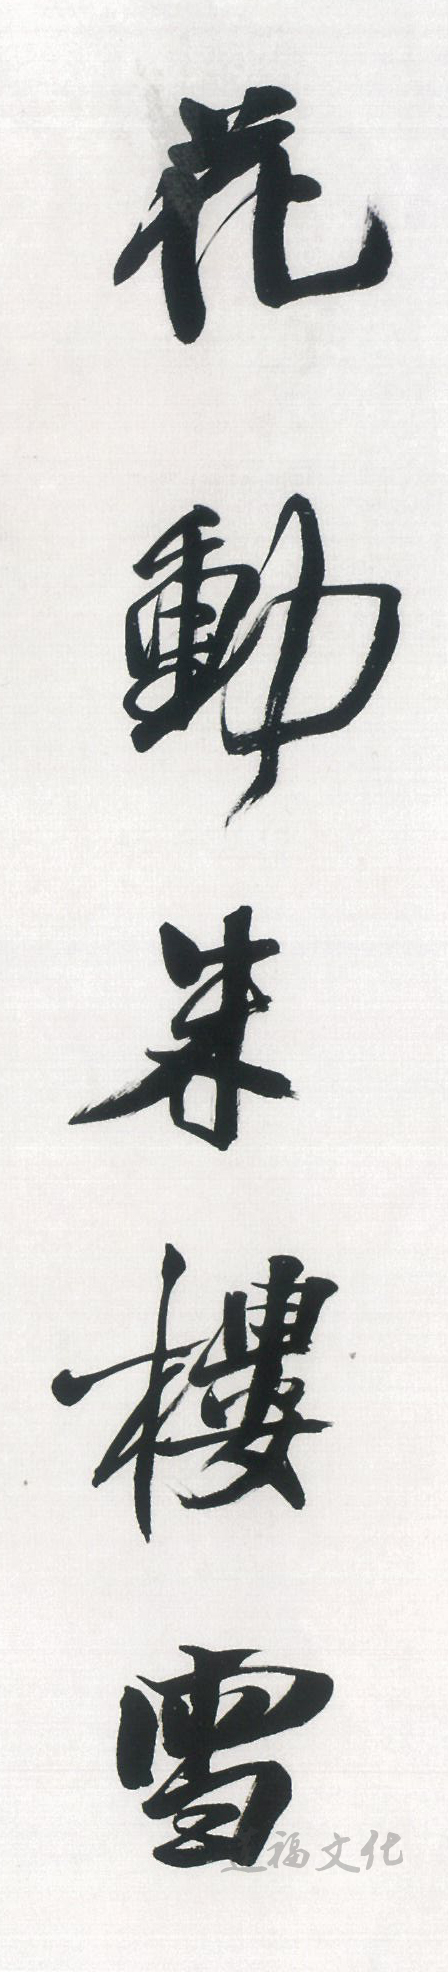 花動朱樓雪
福文化